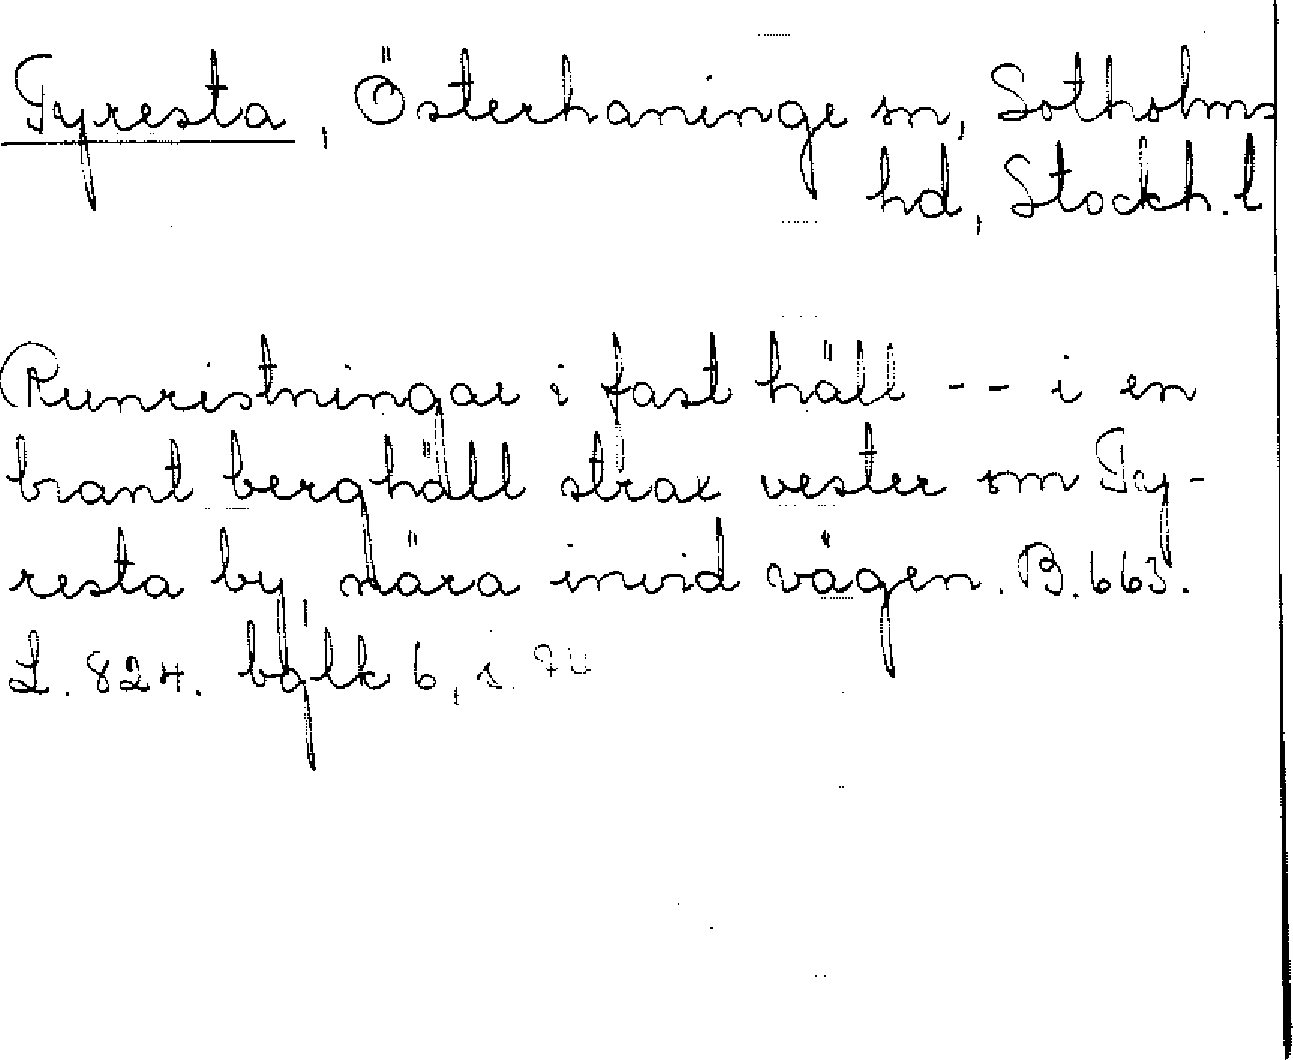 Tyresta, Österhaninge sn, Sotholms
hd, Stockh. l
Runristningar i fast häll -- i en
brant berghäll strax vester om Ty-
resta by, nära invid vägen. B. 663.
L. 824. bylk 6, s.